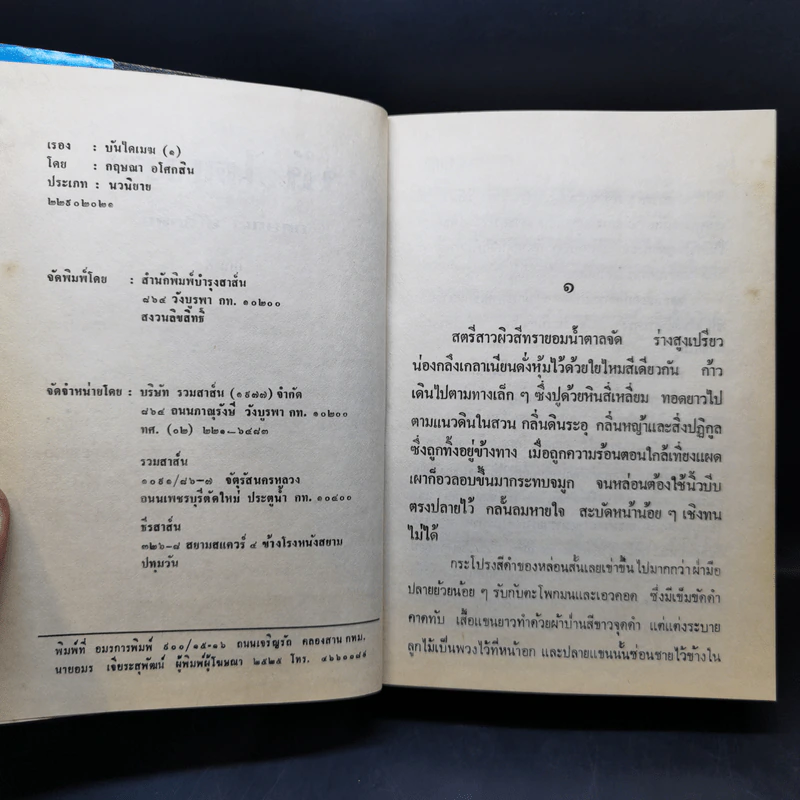 เรื่อง : บันไดเมฆ (๑)
โดย : กฤษณา อโศกสิน
ประเภท : นวนิยาย
๒๒๙๐๒๐๒๑
จัดพิมพ์โดย : สำนักพิมพ์บำรุงสาส์น
๘๖๔ วังบูรพา กท. ๑๐๒๐๐
สงวนลิขสิทธิ์
จัดจำหน่ายโดย : บริษัท รวมสาส์น (๑๙๗๗) จำกัด
๘๖๔ ถนนภาณุรังษี วังบูรพา กท. ๑๐๒๐๐
ทศ. (๐๒) ๒๒๑–๖๔๘๓
รวมสาส์น
๑๐๙๑/๘๖–๗ จัตุรัสนครหลวง
ถนนเพชรบุรีตัดใหม่ ประตูน้ำ กท. ๑๐๔๐๐
ธีรสาส์น
๓๒๖–๘ สยามสแควร์ ๔ ข้างโรงหนังสยาม
ปทุมวัน
พิมพ์ที่ อมรการพิมพ์ ๘๐๐/๑๕-๑๖ ถนนเจริญรัถ คลองสาน กทม.
นายอมร เจียระสุพัฒน์ ผู้พิมพ์ผู้โฆษณา ๒๕๒๕ โทร. ๔๖๖๑๐๘๙
๑
สตรีสาวผิวสีทรายอมน้ำตาลจัด ร่างสูงเปรียว
น่องกลึงเกลาเนียนดั่งหุ้มไว้ด้วยใยไหมสีเดียวกัน ก้าว
เดินไปตามทางเล็ก ๆ ซึ่งปูด้วยหินสี่เหลี่ยม ทอดยาวไป
ตามแนวดินในสวน กลิ่นดินระอุ กลิ่นหญ้าและสิ่งปฏิกูล
ซึ่งถูกทิ้งอยู่ข้างทาง เมื่อถูกความร้อนตอนใกล้เที่ยงแผด
เผาก็อวลอบขึ้นมากระทบจมูก จนหล่อนต้องใช้นิ้วบีบ
ตรงปลายไว้ กลั้นลมหายใจ สะบัดหน้าน้อย ๆ เชิงทน
ไม่ได้
กระโปรงสีดำของหล่อนสั้นเลยเข่าขึ้นไปมากกว่าฝ่ามือ
ปลายย้วยน้อย ๆ รับกับตะโพกมนและเอวคอด ซึ่งมีเข็มขัดดำ
คาดทับ เสื้อแขนยาวทำด้วยผ้าป่านสีขาวจุดดำ แต่แต่งระบาย
ลูกไม้เป็นพวงไว้ที่หน้าอก และปลายแขนนั้นซ่อนชายไว้ข้างใน